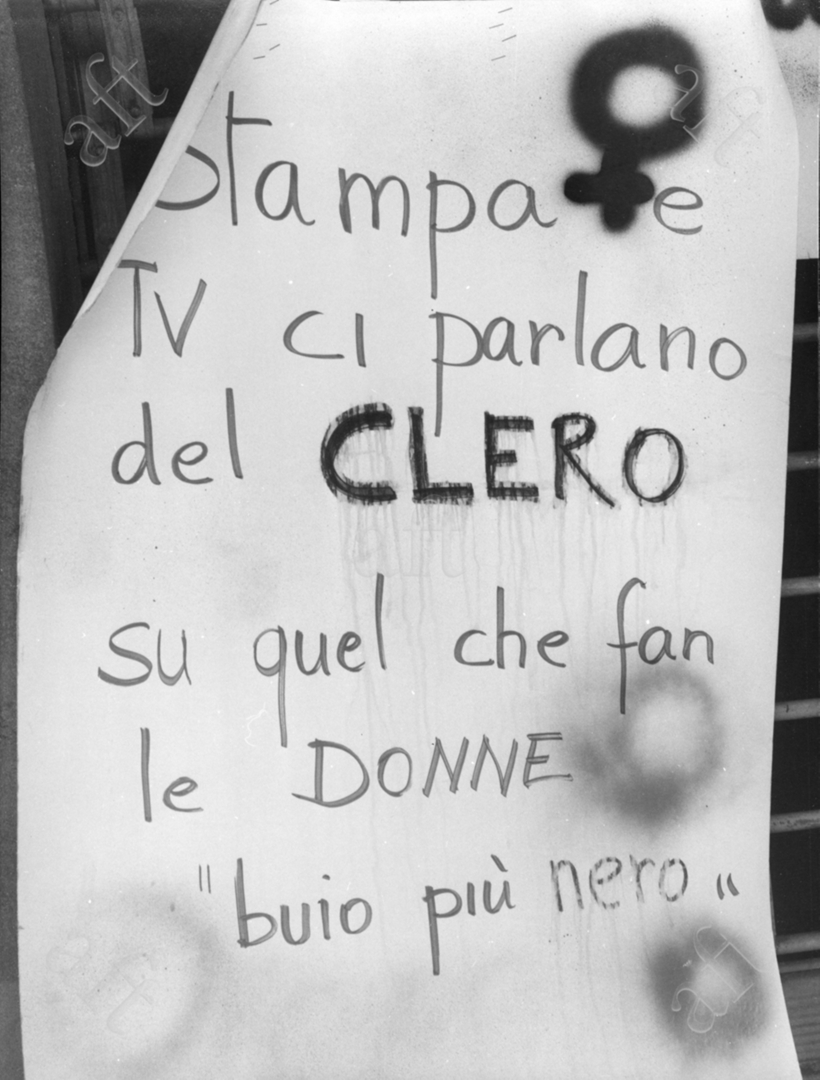 Stampa e
TV ci parlano
del CLERO
su quel che fan
le DONNE
"buio più nero"
aft
aft
aft
aft
aft